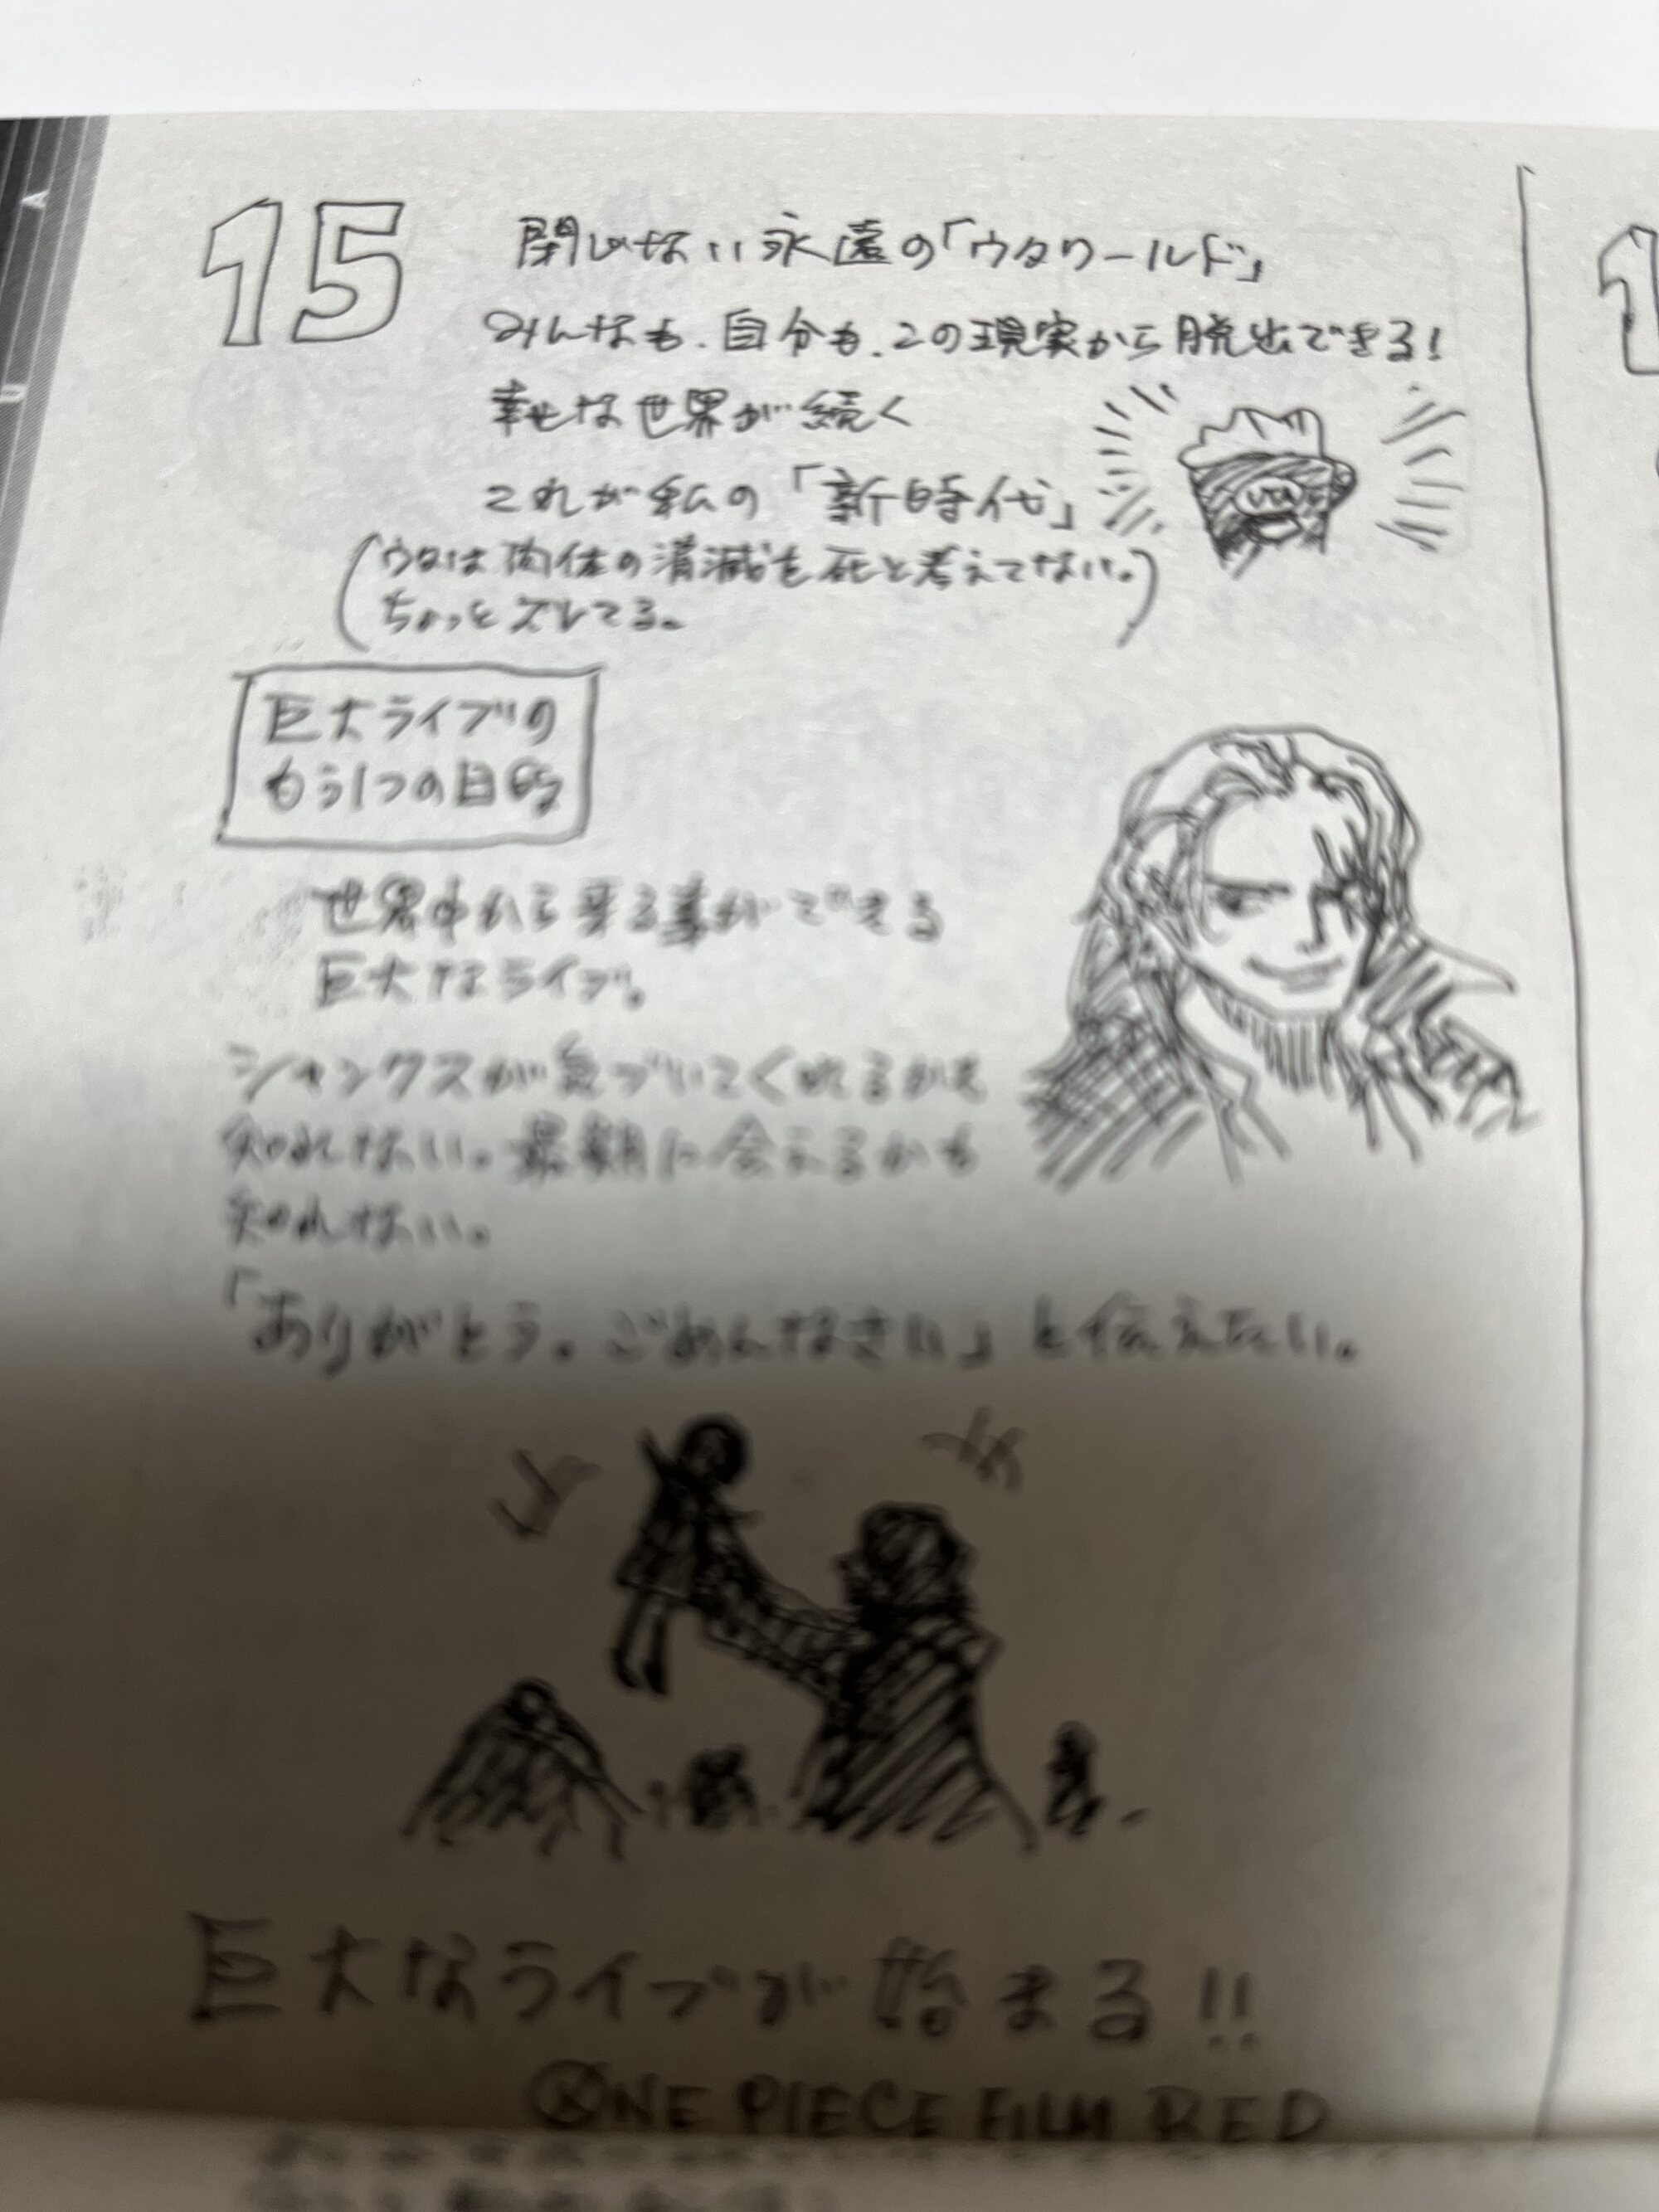 15
閉じない永遠の「ウタワールド」
みんなも、自分も、この現実から脱出できる!
幸せな世界が続く
これが私の「新時代」
UTA
(ウタは肉体の消滅を死と考えてない。
ちょっとズレてる。)
巨大ライブの
もう1つの目的
世界中から来る事ができる
巨大なライブ。
シャンクスが気づいてくれるかも
知れない。最期に会えるかも
知れない。
「ありがとう。ごめんなさい」と伝えたい。
巨大なライブが始まる!!
ONE PIECE FILM RED